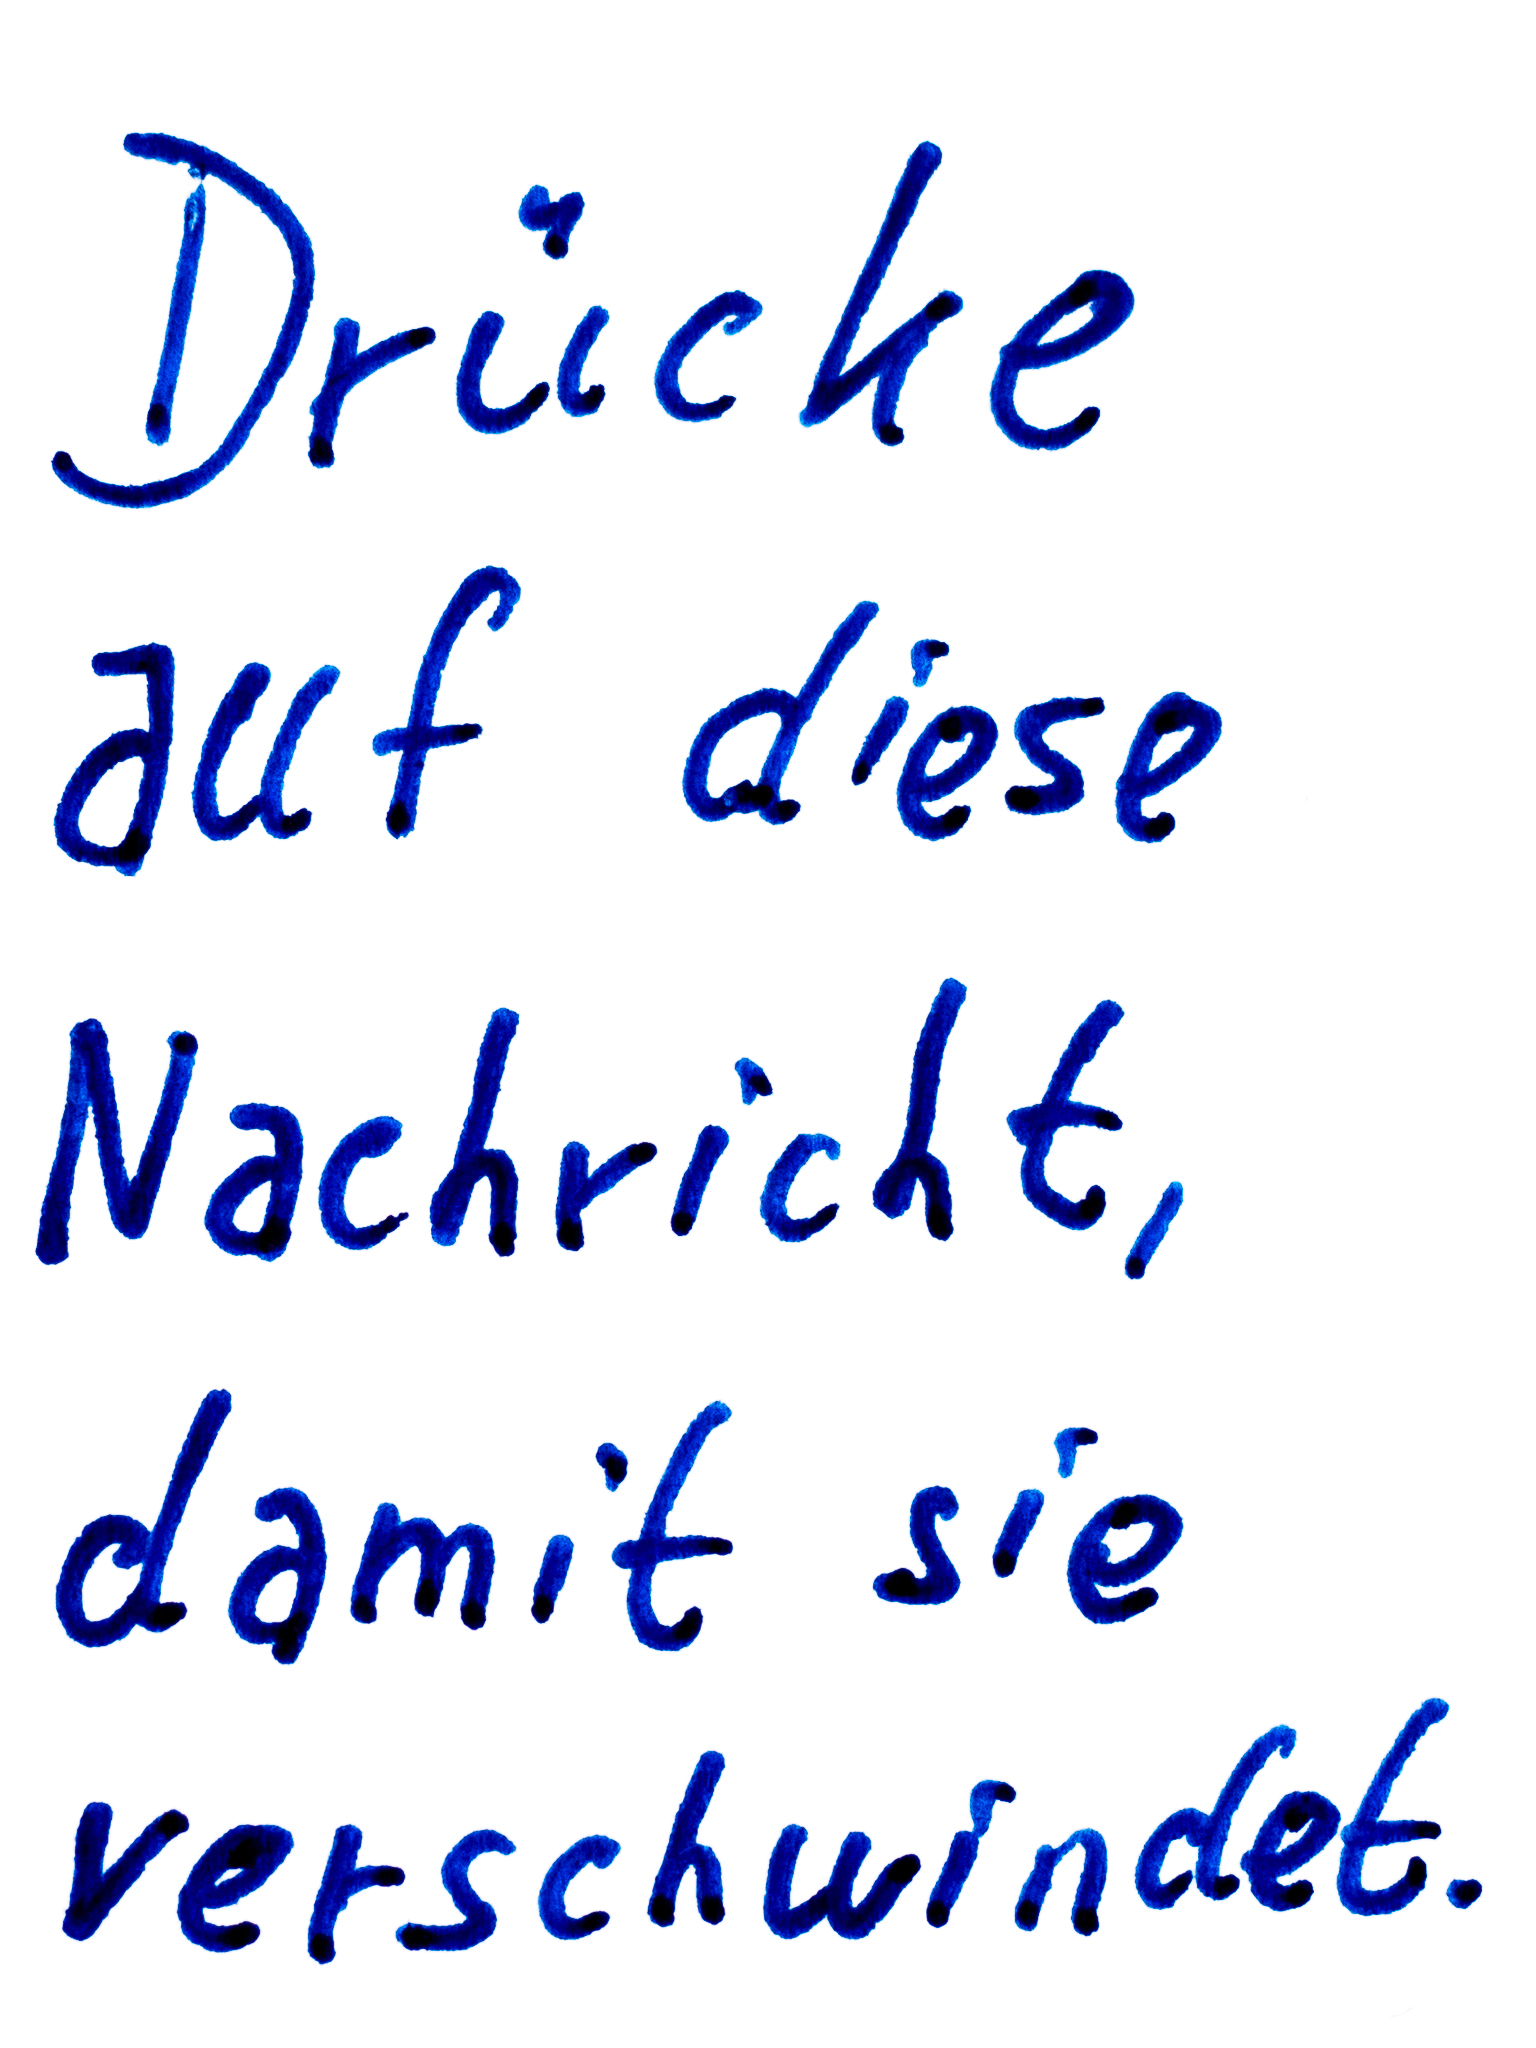 Drücke
auf diese
Nachricht,
damit sie
verschwindet.